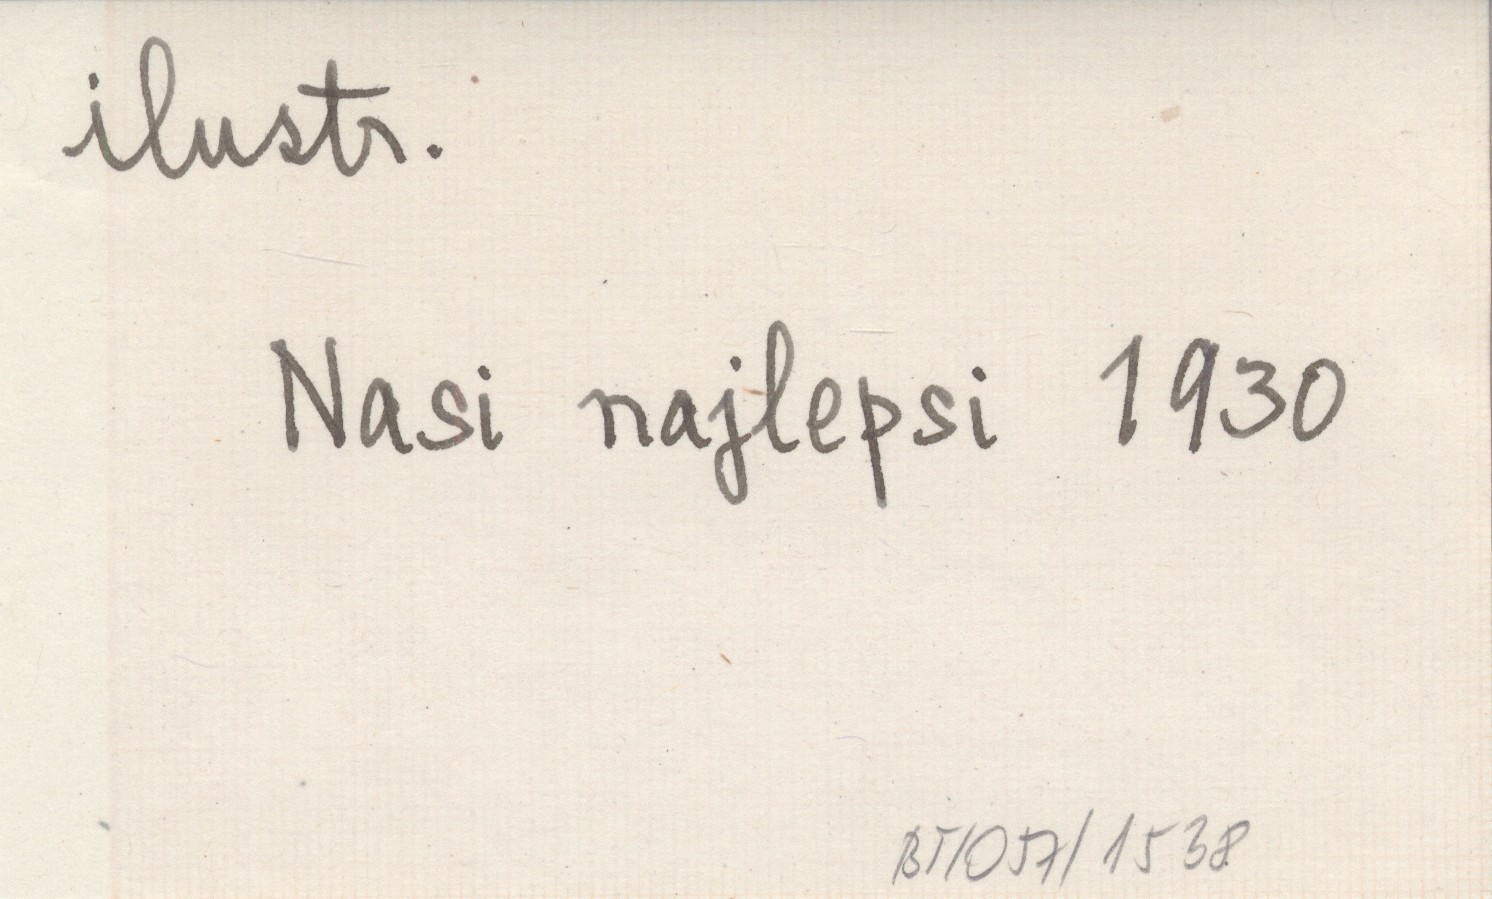 ilustr.
Nasi najlepsi 1930
BT/057/1538